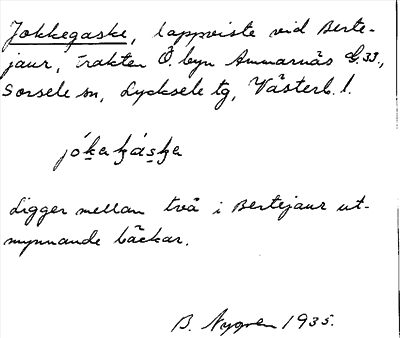 Jokkegaske, lappviste vid Berte-
jaur, trakten Ö. byn Ammarnäs E.33.,
Sorsele sn, Lycksele tg, Västerb. l.
jóḵa ḵásḵa
Ligger mellan två i Bertejaur ut-
mynnande bäckar.
B. Nygren 1935.